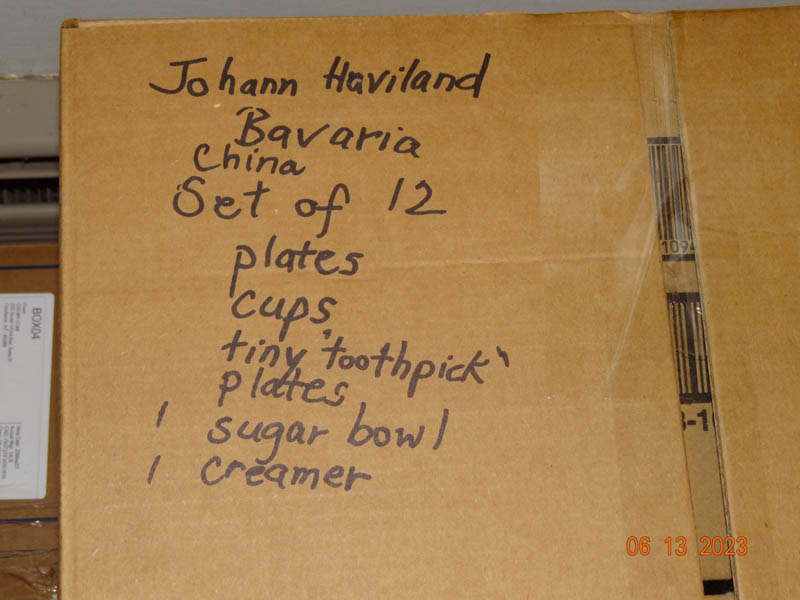 Johann Haviland
Bavaria
China
Set of 12
plates
cups
tiny "toothpick"
plates
1 sugar bowl
1 creamer
109
3-1
BOX04
06 13 2023